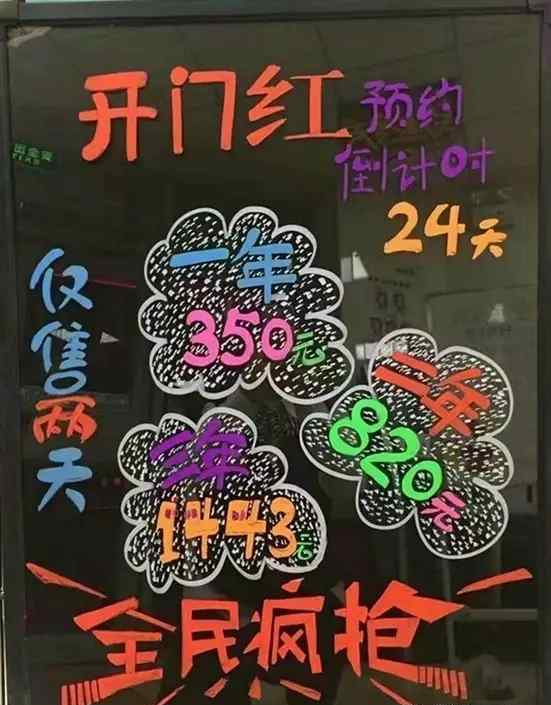 开门红
预约
倒计时
24天
仅售两天
一年
350元
二年
820元
三年
1443元
全民疯抢